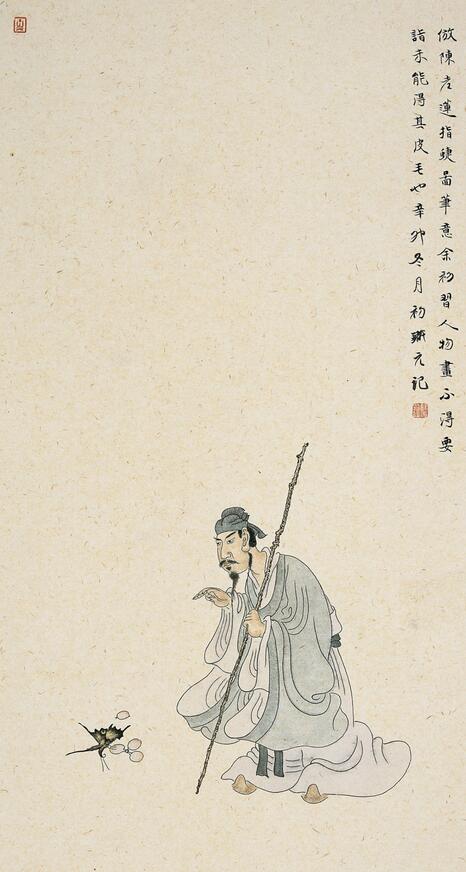 倣陳老蓮指蜨啚筆意余初習人物畫不得要
詣未能得其皮毛也辛卯冬月初元記